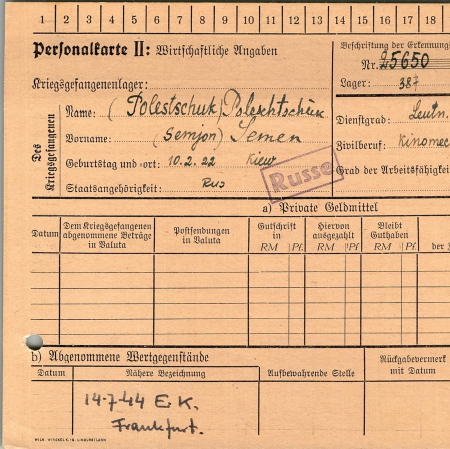 1 2 3 4 5 6 7 8 9 10 11 12 13 14 15 16 17 18
Personalkarte II: Wirtschaftliche Angaben
Beschriftung der Erkennungs
Nr. 25650
Kriegsgefangenenlager:
Lager: 387
Des Kriegsgefangenen
Name: (Polestschuk) Poleschtschuk
Dienstgrad: Leutn.
Vorname: (Semjon) Semen
Zivilberuf: Kinomec
Geburtstag und -ort: 10.2.22 Kiew
Grad der Arbeitsfähigkeit
Staatsangehörigkeit: Rus
Russe
a) Private Geldmittel
Datum
Dem Kriegsgefangenen abgenommene Beträge in Valuta
Postsendungen in Valuta
Gutschrift in
RM Pf.
Hiervon ausgezahlt
RM Pf.
Bleibt Guthaben
RM Pf.
der
b) Abgenommene Wertgegenstände
Rückgabevermerk mit Datum
Datum
Nähere Bezeichnung
Aufbewahrende Stelle
14.7.44 E.K.
Frankfurt.